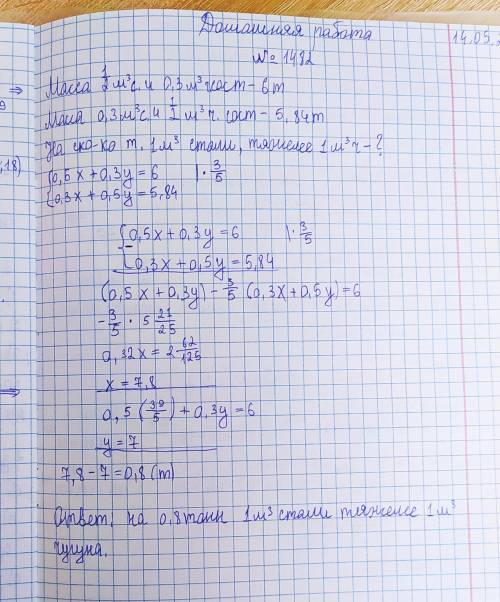 Домашняя работа
14.05.
№ 1492
⇒ Масса 1/2 м³ с. и 0,3 м³ чост – 6т
Масса 0,3 м³ с. и 1/2 м³ ч. ост – 5,84т
На ско-ко т. 1м³ стали, тяжелее 1м³ ч – ?
{0,5x + 0,3y = 6 | · 3/5
{0,3x + 0,5y = 5,84
{0,5x + 0,3y = 6 | · 3/5
– {0,3x + 0,5y = 5,84
(0,5x + 0,3y) – 3/5 (0,3x + 0,5y) = 6
– 3/5 · 5 21/25
0,32x = 2 62/125
x = 7,8
0,5 (39/5) + 0,3y = 6
y = 7
7,8 – 7 = 0,8 (т)
Ответ: на 0,8 тонн 1м³ стали тяжелее 1м³
чугуна.
,18)
⇒